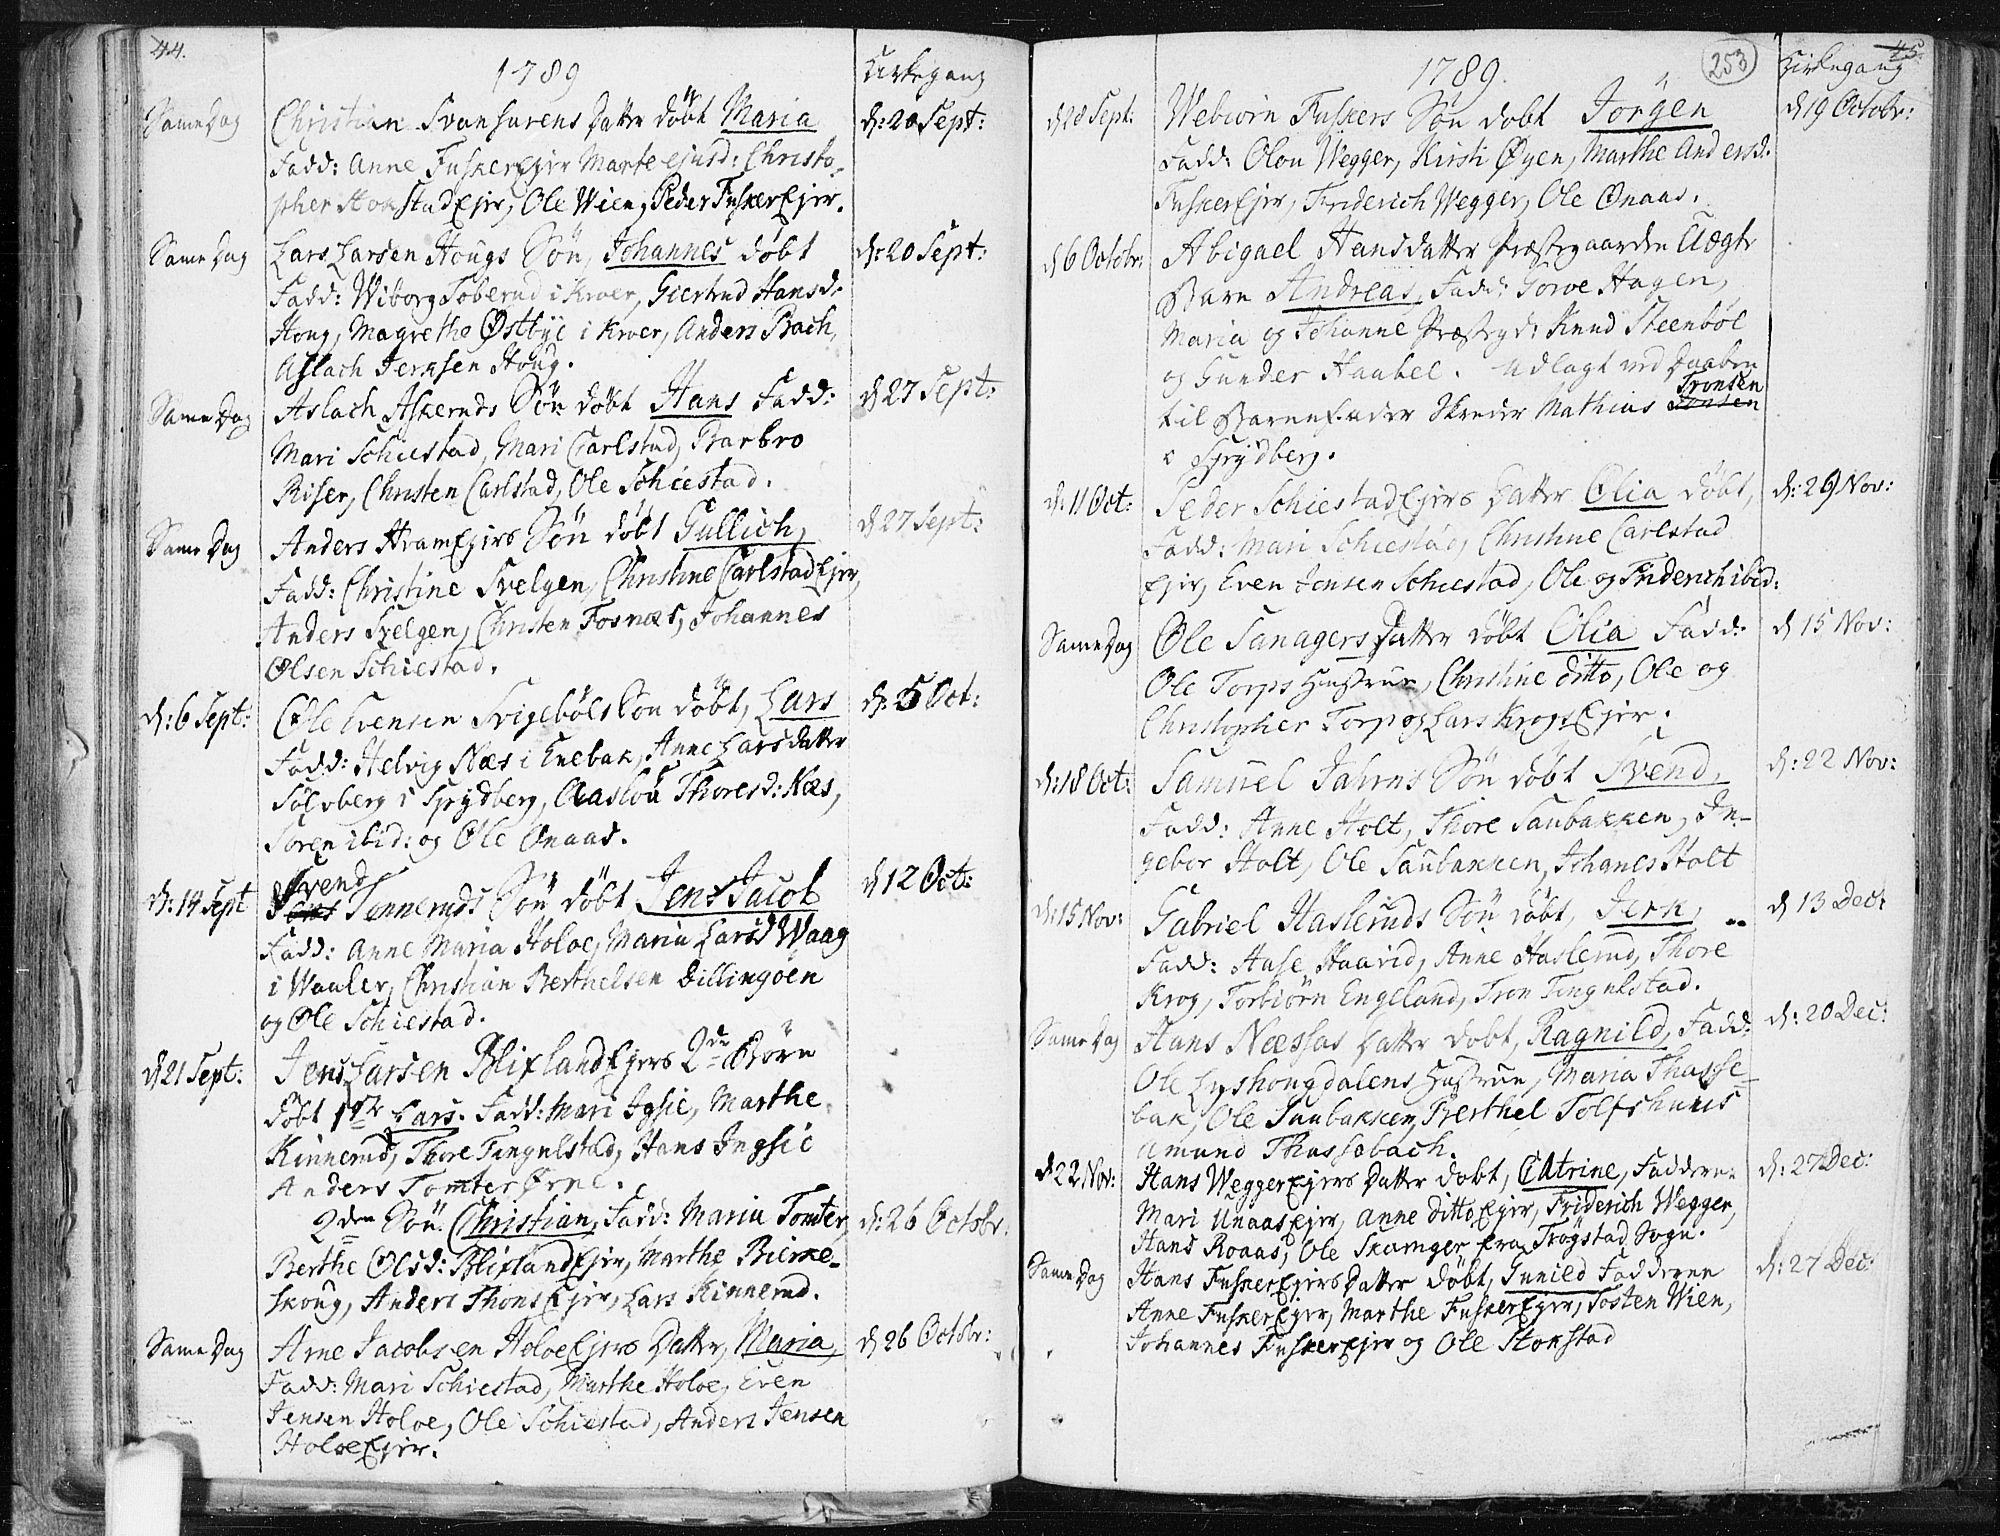 44.
1789
Kirkegang
Same Dag Christian Svansurens Datter döbt Maria d: 20 Sept:
Fadd: Anne FuskerEjer Marte ejusd: Christo-
pher HokstadEjer, Ole Wien, Peder FuskerEjer.
Same Dag Lars Larsen Hougs Sön, Johannes döbt d: 20 Sept:
Fadd: Wiborg Toberud i Kroer, Giertrud Hansd:
Houg, Magrethe Østbye i Kroer, Anders Bach,
Aslach Jerksen Houg.
Same Dag Aslach Askeruds Sön döbt Hans Fadd: d 27 Sept:
Mari Schiestad, Mari Carlstad, Barbro
Riser, Christen Carlstad, Ole Schiestad.
Same Dag Anders HramEjers Sön döbt Gullich, d 27 Sept:
Fadd: Christine Svelgen, Christine CarlstadEjer,
Anders Svelgen, Christen Fosnæs, Johannes
Olsen Schiestad.
d: 6 Sept: Ole Evensen Svigeböls Sön döbt, Lars d: 5 Oct:
Fadd: Helvig Næs i Enebak, Anne Larsdatter
Solvberg i Spydberg, Aaslou Thoresd: Næs,
Soren ibid: og Ole Onaas.
Svend
d: 14 Sept Tenneruds Sön döbt Jens Jacob d 12 Oct:
Fadd: Anne Maria Holoe, Maria Larsd Waag
i Waaler, Christian Berthelsen Dillingöen
og Ole Schiestad.
d 21 Sept: Jens Larsen BlixlandEjers 2de Börn
döbt 1ste Lars. Fadd: Mari Igsie, Marthe
Kinnerud, Thore Tingulstad, Hans Ingsie
Anders Tomter Ørne.
2den Sön Christian, Fadd: Maria Tomter, d: 26 Octobr:
Berthe Olsd: BlixlandEjer, Marthe Bierke-
skoug, Anders ThonsEjer, Lars Kinnerud.
Same Dag Arne Jacobsen HoloeEjers Datter, Maria, d 26 Octobr:
Fadd: Mari Schiestad, Marthe Holoe, Even
Jensen Holoe, Ole Schiestad, Anders Jensen
HoloeEjer.
45
253
1789.
Kirkegang
d 28 Sept: Webiörn Fuskers Sön döbt Jörgen d 19 Octobr:
Fadd: Olou Wegger, Kirsti Øyen, Marthe Andersd.
FuskerEjer, Friderich Wegger, Ole Onaas.
d 6 Octobr: Abigael Hansdatter Præstegaarden Uægte
Barn Andreas, Fadd: Gorve Hagen,
Maria og Johanne Præstgd: Knud Steenböl
og Gunder Haabel. Udlagt ved Daaben
til Barnefader Skreder Mathias Tronsen
i Spydberg.
d: 11 Oct: Peder SchiestadEjers Datter Olia döbt, d: 29 Nov:
Fadd: Mari Schiestad, Christine Carlstad
Ejer, Even Jensen Schiestad, Ole og Friderich ibid:
Same Dag Ole Sanagers Datter döbt Olia Fadd: d 15 Nov:
Ole Torps Hustrue, Christine ditto, Ole og
Christopher Torp og Lars KrogsEjer.
d: 18 Oct: Samuel Jahrns Sön döbt Svend, d: 22 Nov:
Fadd: Anne Holt, Thore Saubakken, In-
gebor Holt, Ole Saubakken, Johanes Holt
d: 15 Nov: Gabriel Hasleruds Sön döbt, Jerk, d 13 Dec:
Fadd: Hase Haavid, Anne Haslerud, Thore
Krog, Torbiörn Engeland, Tron Tingulstad.
Same Dag Hans Næssas Datter dobt, Ragnild, Fadd: d: 20 Dec:
Ole Lyshougdalens Hustrue, Maria Thasse-
bak, Ole Saubakken, Berthel Tolfshuus
Amund Thassebach.
d 22 Nov: Hans WeggerEjers Datter döbt, Catrine, Faddere: d: 27 Dec:
Mari UnaasEjer, Anne ditto Ejer, Friderich Wegger,
Hans Roaas, Ole Skamger fra Trögstad Sogn.
Same Dag Hans FuskerEjers Datter döbt, Gunild Faddere d: 27 Dec:
Anne FuskerEjer, Marthe FuskerEjer, Tosten Wien,
Johannes FuskerEjer og Ole Stokstad